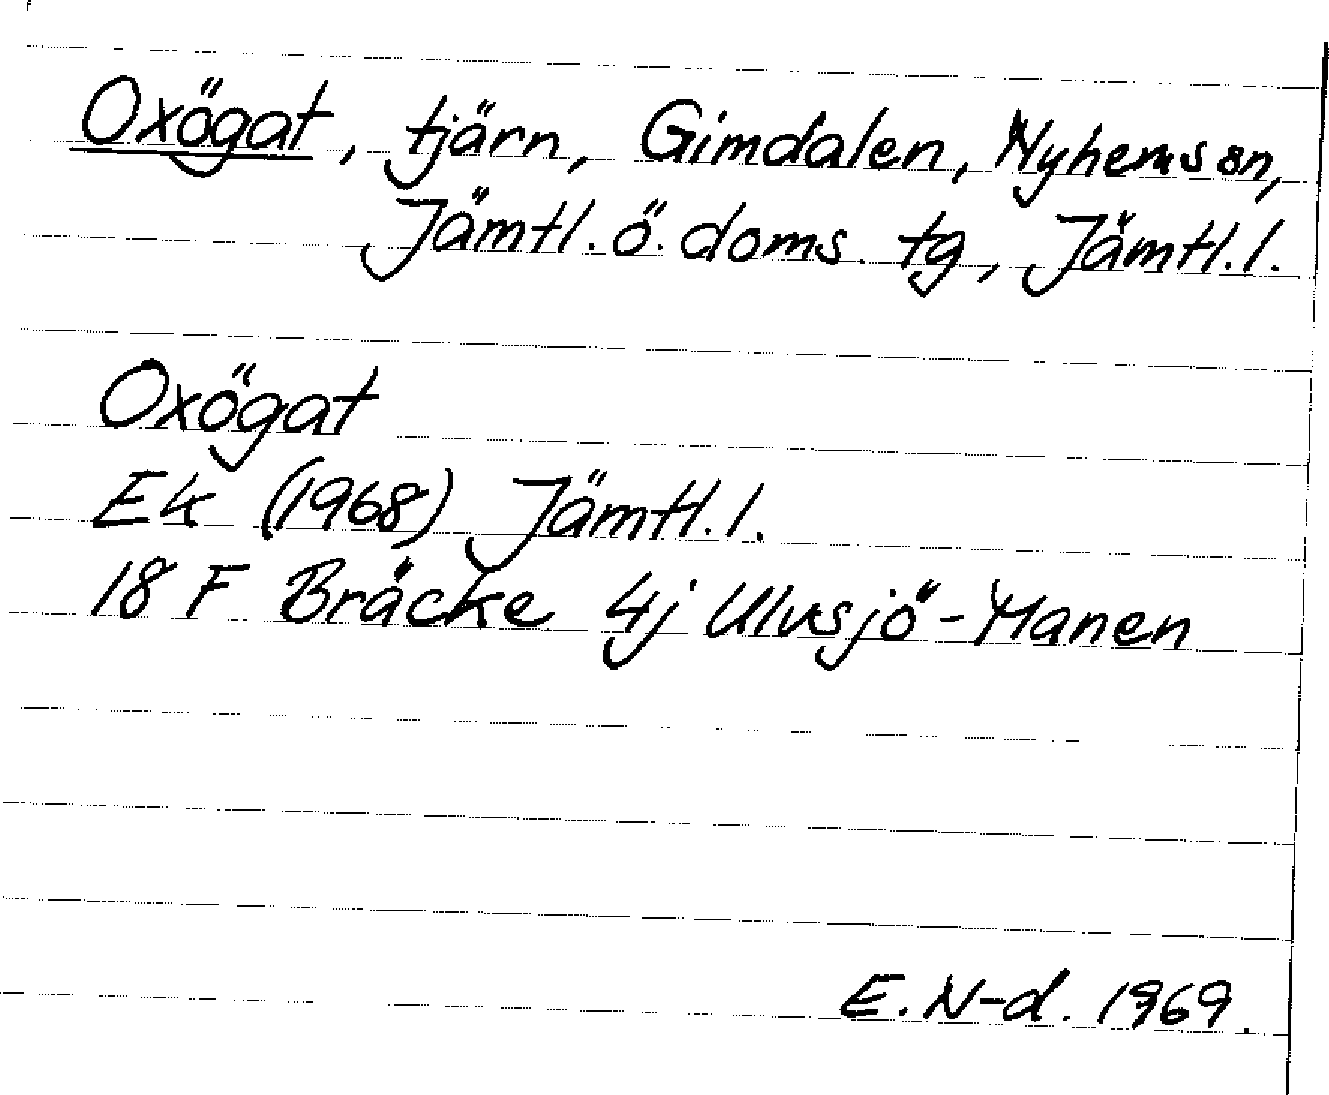 Oxögat, tjärn, Gimdalen, Nyhems sn,
Jämtl. ö. doms. tg, Jämtl. l.
Oxögat
Ek (1968) Jämtl. l.
18 F Bräcke 4j Ulvsjö-Manen
E. N-d. 1969.